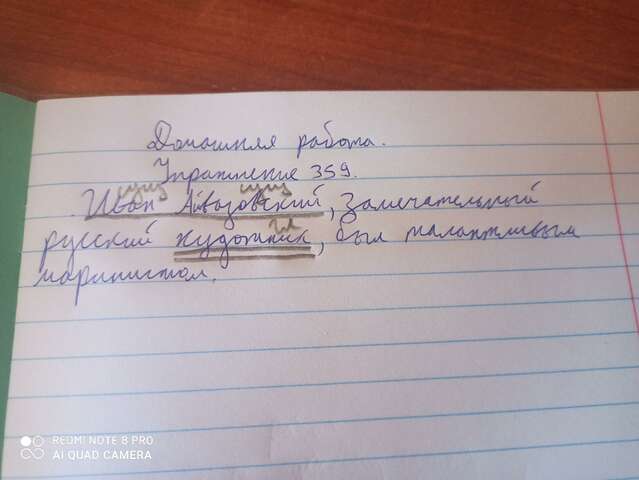 Домашняя работа.
Упражнение 359.
сущ сущ
Иван Айвазовский, замечательный
гл
русский художник, был талантливым
маринистом.
REDMI NOTE 8 PRO
AI QUAD CAMERA